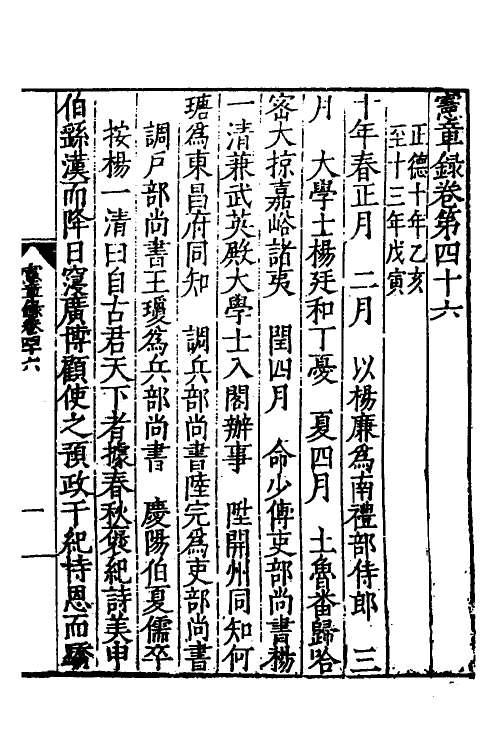 憲章録卷第四十六
正德十年乙亥
至十三年戊寅
十年春正月　二月　以楊廉爲南禮部侍郎　三
月　大學士楊廷和丁憂　夏四月　土魯番歸哈
密大掠嘉峪諸夷　閏四月　命少傅吏部尚書楊
一清兼武英殿大學士入閣辦事　陞開州同知何
瑭爲東昌府同知　調兵部尚書陸完爲吏部尚書
調戸部尚書王瓊爲兵部尚書　慶陽伯夏儒卒
按楊一清曰自古君天下者據春秋褒紀詩美申
伯繇漢而降日寖廣博顧使之預政干紀恃恩而驕
憲章錄卷四十六
一